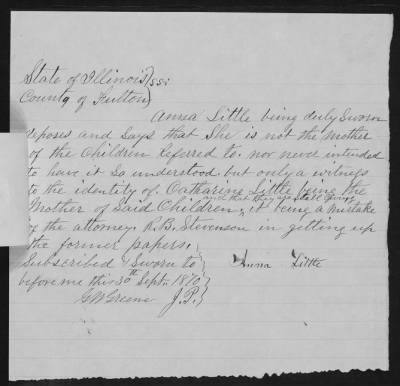 State of Illinois } ss:
County of Fulton }
Anna Little being duly Sworn
deposes and Says that She is not the Mother
of the Children referred to. nor never intended
to have it so understood but only a witness
to the identity of Catharine Little being the
and that they are still living
Mother of Said Children, it being a mistake
of the attorney R.B. Stevenson in getting up
the former papers.
Subscribed & Sworn to } Anna Little
before me this 30th Sept. 1870 }
GW Greene J.P. }